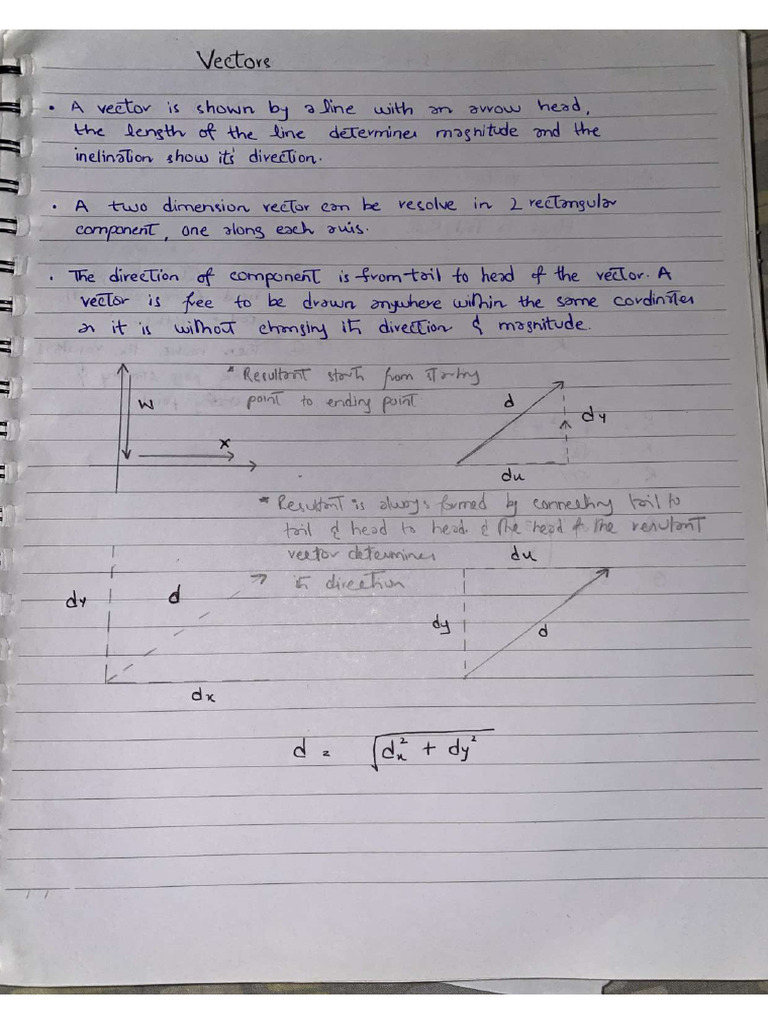 Vectors
• A vector is shown by a line with an arrow head,
the length of the line determines magnitude and the
inclination show its' direction.
• A two dimension vector can be resolve in 2 rectangular
component, one along each axis.
• The direction of component is from tail to head of the vector. A
vector is free to be drawn anywhere within the same cordinates
as it is without changing its direction & magnitude.
* Resultant starts from starting
point to ending point
W
x
d
dy
dx
* Resultant is always formed by connecting tail to
tail & head to head & the head of the resultant
vector determines
its direction
dx
dy
d
dy
d
dx
d = √dx² + dy²